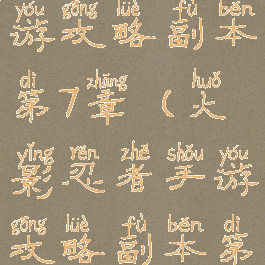 yóu gōng lüè fù běn
游攻略副本
dì zhāng huǒ
第7章(火
yǐng rěn zhě shǒu yóu
影忍者手游
gōng lüè fù běn dì
攻略副本第